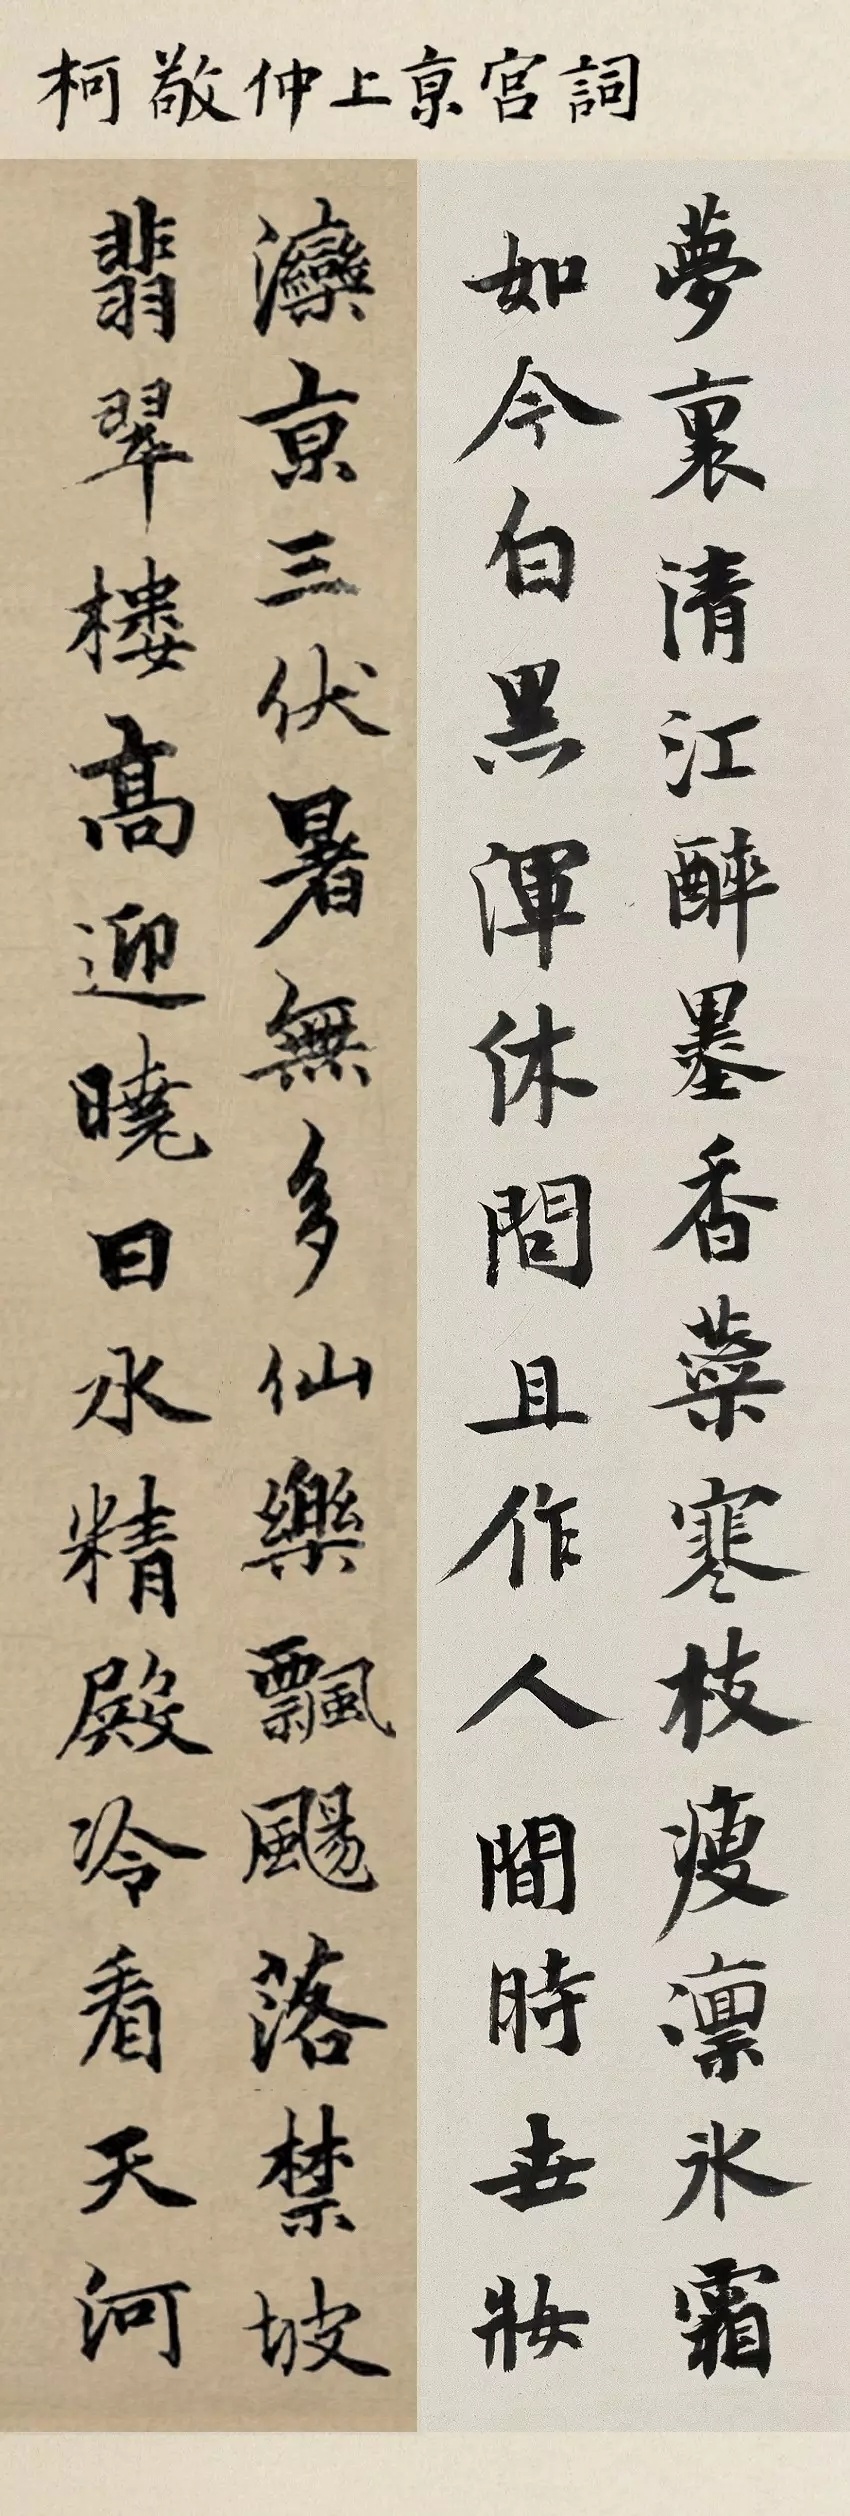 柯敬仲上京宮詞
夢裏清江醉墨香蘂寒枝瘦凛冰霜
如今白黑渾休問且作人間時世妝
灤京三伏暑無多仙樂飄颺落禁坡
翡翠樓高迎曉日水精殿冷看天河